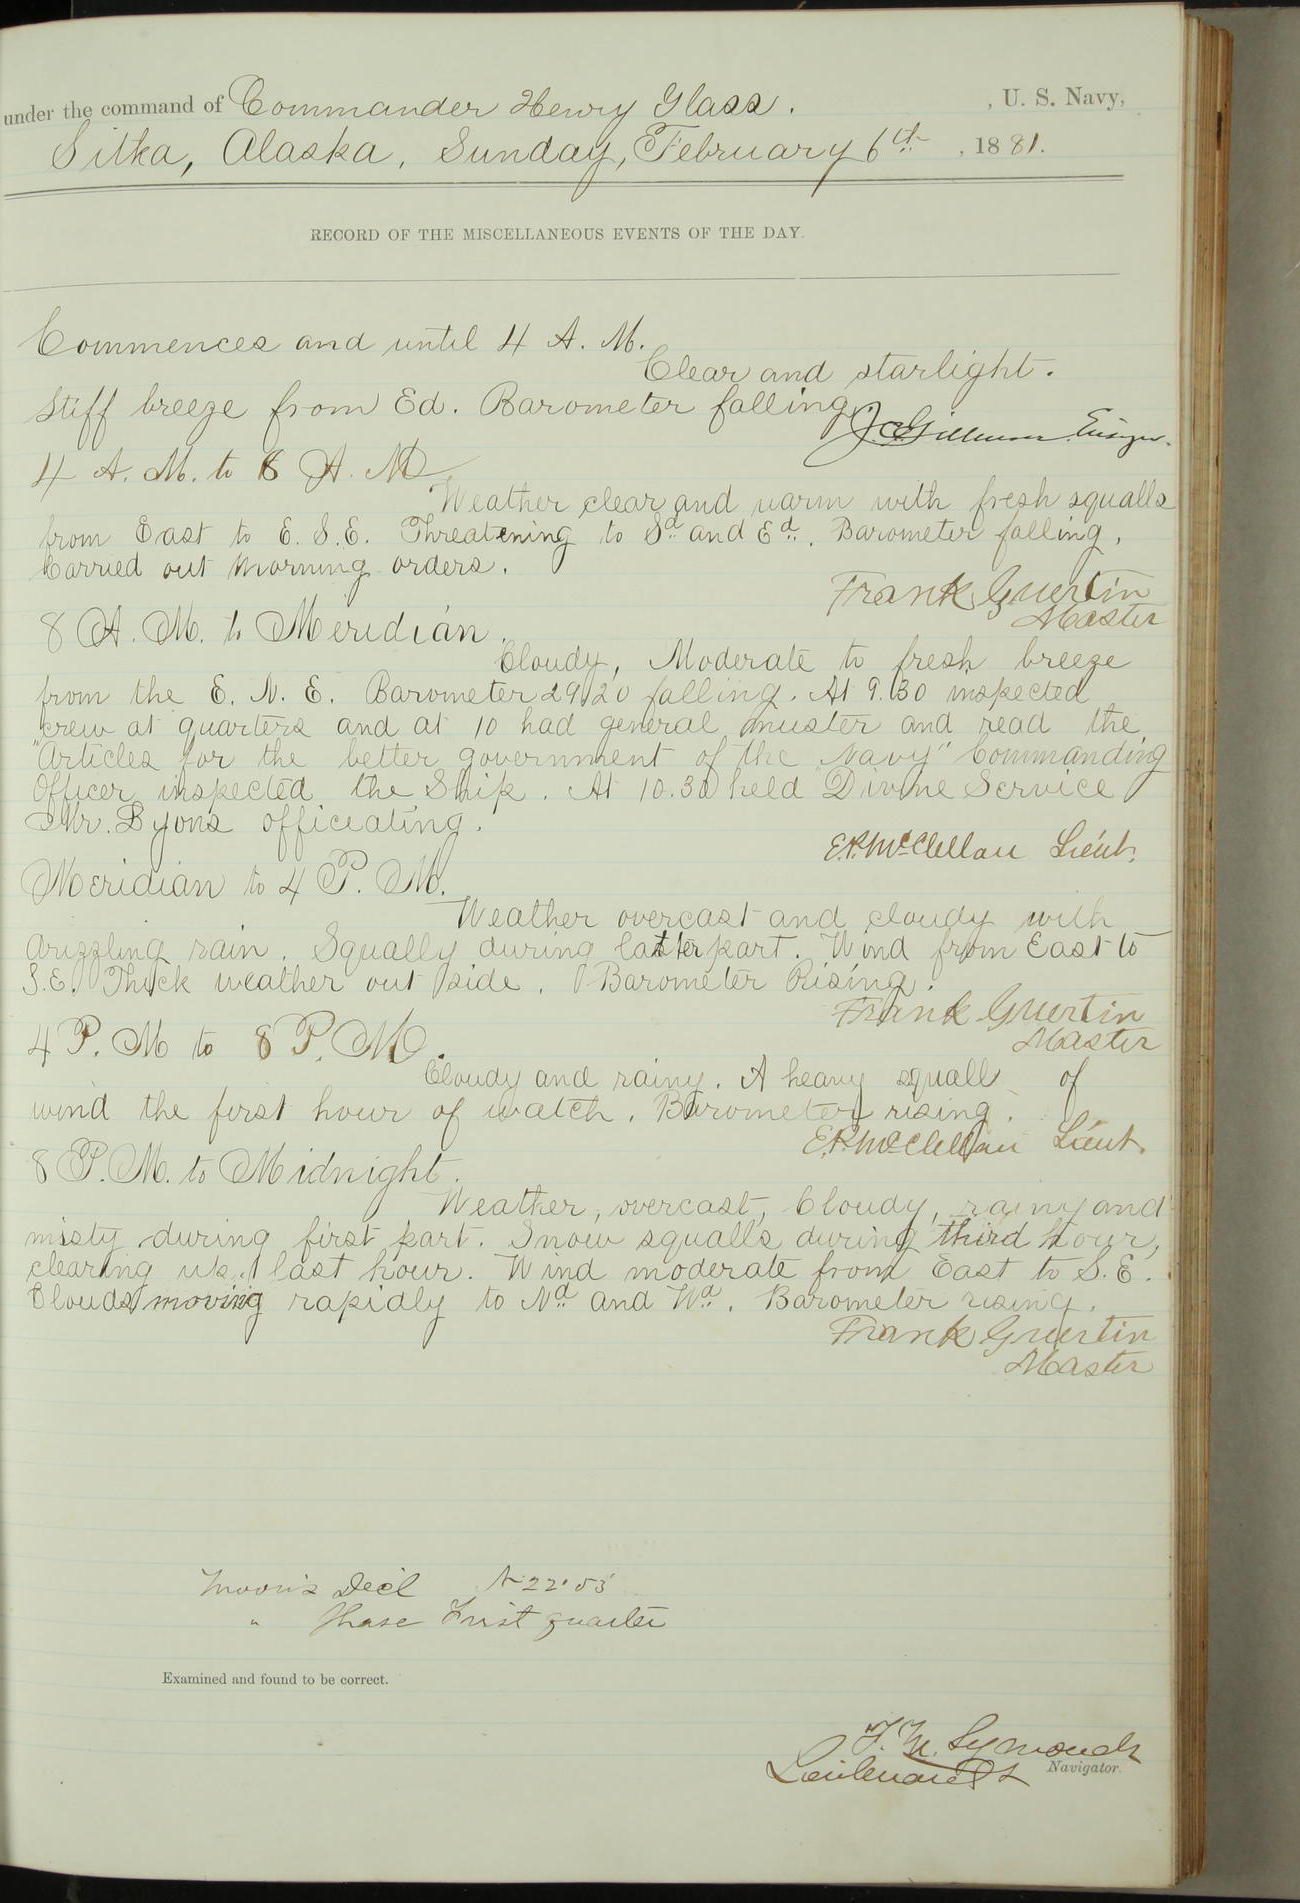 under the command of Commander Henry Glass. , U. S. Navy,
Sitka, Alaska, Sunday, February 6th , 1881.
RECORD OF THE MISCELLANEOUS EVENTS OF THE DAY.
Commences and until 4 A. M.
Clear and starlight.
Stiff breeze from Ed. Barometer falling.
J C Gillmore Ensign.
4 A. M. to 8 A. M.
Weather clear and warm with fresh squalls
from East to E. S. E. Threatening to Sd and Ed. Barometer falling.
Carried out morning orders.
Frank Guertin
Master
8 A. M. to Meridian.
Cloudy, Moderate to fresh breeze
from the E. N. E. Barometer 29.20 falling. At 9.30 inspected
crew at quarters and at 10 had general muster and read the
"Articles for the better government of the Navy" Commanding
Officer inspected the Ship. At 10.30 held Divine Service
Mr. Lyons officeating.
E.P. McClellan Lieut.
Meridian to 4 P. M.
Weather overcast and cloudy with
drizzling rain. Squally during latter part. Wind from East to
S.E. Thick weather out side. Barometer Rising.
Frank Guertin
Master
4 P. M to 8 P. M.
Cloudy and rainy. A heavy squall of
wind the first hour of watch. Barometer rising.
E.P. McClellan Lieut.
8 P. M. to Midnight.
Weather, overcast, Cloudy, rainy and
misty during first part. Snow squalls during third hour,
clearing up last hour. Wind moderate from East to S. E.
Clouds moving rapidly to Nd and Wd. Barometer rising.
Frank Guertin
Master
Moon's Decl N 22° 53'
" Phase First quarter
Examined and found to be correct.
F. M. Symonds
Lieutenant Navigator.